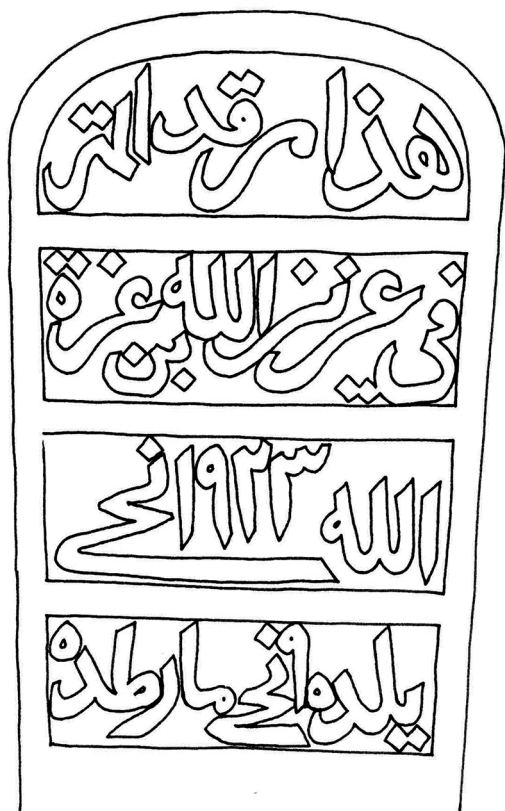 هذا مرقد المتو
فى عزيز الله بن عزة
الله ١٩٢٣ نجى
يلده ٩ نجى مارطده